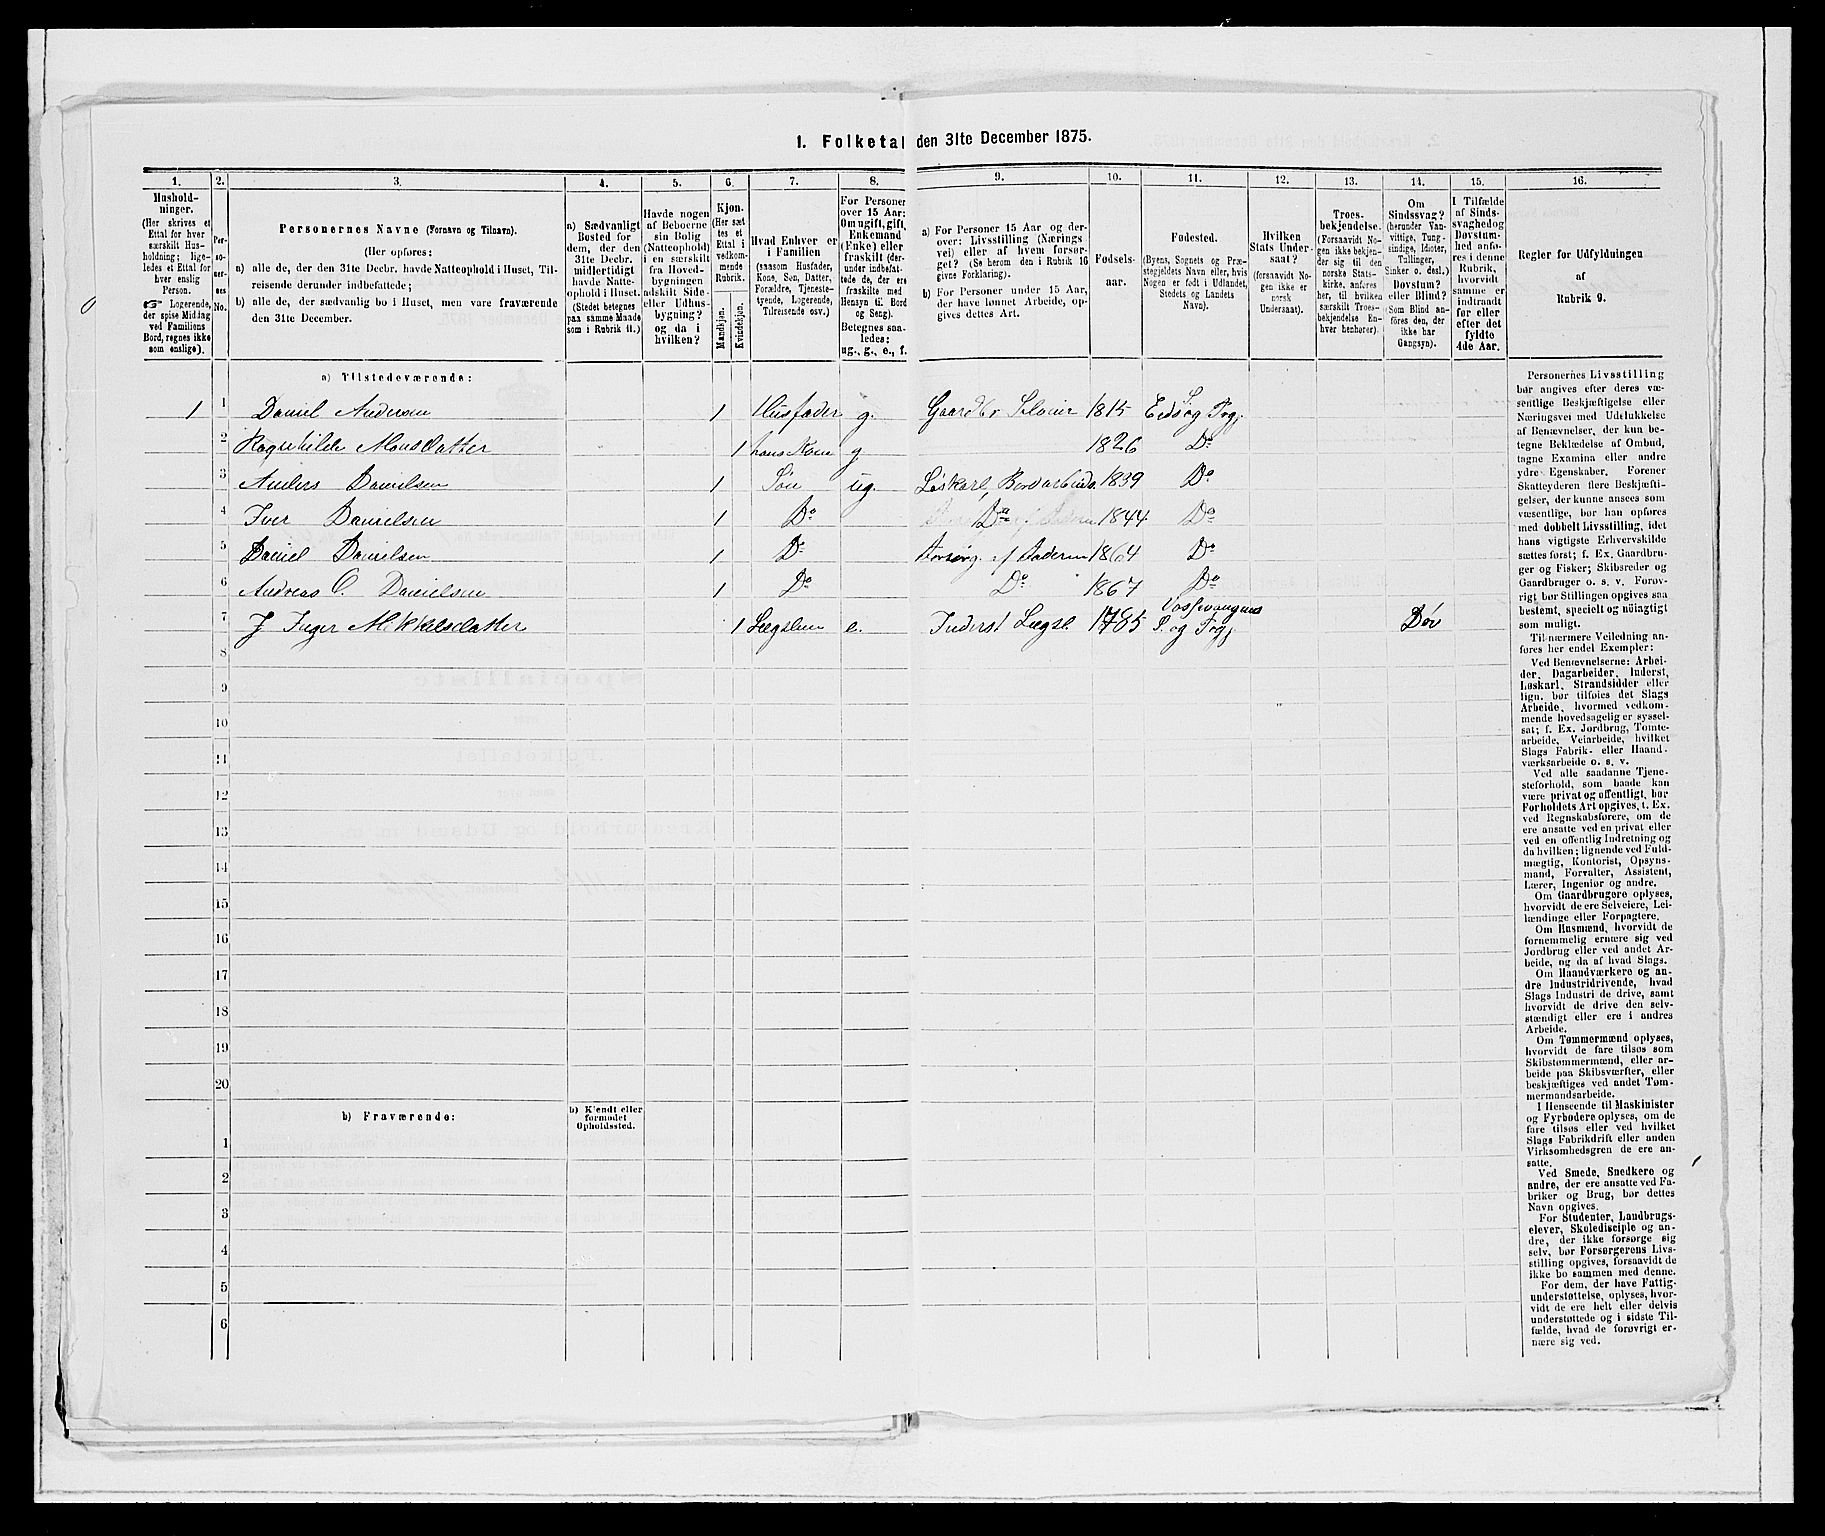 1. Folketal den 31te December 1875.
1. 2. 3. 4. 5. 6. 7. 8. 9. 10. 11. 12. 13. 14. 15. 16.
Hushold-
ninger.
(Her skrives et
Ettal for hver
særskilt Hus-
holdning; lige-
ledes et Ettal for
hver enslig
Person.
☞ Logerende,
der spise Middag
ved Familiens
Bord, regnes ikke
som enslige).
Per-
so-
ner-
nes
No.
Personernes Navne (Fornavn og Tilnavn).
(Her opføres:
a) alle de, der den 31te Decbr. havde Natteophold i Huset, Til-
reisende derunder indbefattede;
b) alle de, der sædvanlig bo i Huset, men vare fraværende
den 31te December.
a) Sædvanligt
Bosted for
dem, der den
31te Decbr.
midlertidigt
havde Natte-
ophold i Huset.
(Stedet betegnes
paa samme Maade
som i Rubrik 11.)
Havde nogen
af Beboerne
sin Bolig
(Natteophold)
i en særskilt
fra Hoved-
bygningen
adskilt Side-
eller Udhus-
bygning?
og da i
hvilken?
Kjøn.
(Her sæt
tes et
Ettal i
vedkom-
mende
Rubrik.
Mandkjøn.
Kvindekjøn.
Hvad Enhver er
i Familien
(saasom Husfader,
Kone, Søn, Datter,
Forældre, Tjeneste-
tyende, Logerende,
Tilreisende osv.)
For Personer
over 15 Aar:
Om ugift, gift,
Enkemand
(Enke) eller
fraskilt (der-
under indbefat-
tede de, der ere
fraskilte med
Hensyn til Bord
og Seng).
Betegnes saa-
ledes:
ug., g., e., f.
a) For Personer 15 Aar og der-
over: Livsstilling (Nærings-
vei) eller af hvem forsør-
get? (Se herom den i Rubrik 16
givne Forklaring).
b) For Personer under 15 Aar,
der have lønnet Arbeide, op-
gives dettes Art.
Fødsels-
aar.
Fødested.
(Byens, Sognets og Præ-
stegjeldets Navn eller, hvis
Nogen er født i Udlandet,
Stedets og Landets
Navn).
Hvilken
Stats Under-
saat?
(forsaavidt No-
gen ikke er
norsk
Undersaat).
Troes-
bekjendelse.
(Forsaavidt No-
gen ikke bekjen-
der sig til den
norske Stats-
kirke, anføres
her, til hvilken
særskilt Troes-
bekjendelse En-
hver henhører).
Om
Sindssvag?
(herunder Van-
vittige, Tung-
sindige, Idioter,
Tullinger,
Sinker o. desl.)
Døvstum?
eller Blind?
(Som Blind an-
føres den, der
ikke har
Gangsyn).
I Tilfælde
af Sinds-
svaghed og
Døvstum-
hed anfø-
res i denne
Rubrik,
hvorvidt
samme er
indtraadt
før eller
efter det
fyldte
4de Aar.
Regler for Udfyldningen
af
Rubrik 9.
a) Tilstedeværende:
1 1 Daniel Andersen 1 Husfader g. Gaardbr Selveier 1815 Eids S. og Prgj.
2 Ragnhilde Monsdatter 1 hans Kone g 1826 Do
3 Anders Danielsen 1 Søn ug. Løskarl, Bordarbeide. 1839 Do
4 Iver Danielsen 1 Do Do 1844 Do
5 Daniel Danielsen 1 Do Forsørg. af Faderen 1864 Do
6 Andreas O. Danielsen 1 Do Do 1867 Do
7 Inger Mikkelsdatter 1 Lægslem e. Inderst Lægsl. 1785 Vossevangens S. og Prgj. Døv
8
9
10
11
12
13
14
15
16
17
18
19
20
b) Fraværende:
b) Kjendt eller
formodet
Opholdssted.
1
2
3
4
5
6
Personernes Livsstilling
bør angives efter deres væ-
sentlige Beskjæftigelse eller
Næringsvei med Udelukkelse
af Benævnelser, der kun be-
tegne Beklædelse af Ombud,
tagne Examina eller andre
ydre Egenskaber. Forener
Skatteyderen flere Beskjæfti-
gelser, der kunne ansees som
væsentlige, bør han opføres
med dobbelt Livsstilling, idet
hans vigtigste Erhvervskilde
sættes først; f. Ex. Gaardbru-
ger og Fisker; Skibsreder og
Gaardbruger o. s. v. Forøv-
rigt bør Stillingen opgives saa
bestemt, specielt og nøiagtigt
som muligt.
Til nærmere Veiledning an-
føres her endel Exempler:
Ved Benævnelserne: Arbei-
der, Dagarbeider, Inderst,
Løskarl, Strandsidder eller
lign. bør tilføies det Slags
Arbeide, hvormed vedkom-
mende hovedsagelig er syssel-
sat; f. Ex. Jordbrug, Tomte-
arbeide, Veiarbeide, hvilket
Slags Fabrik- eller Haand-
værksarbeide o. s. v.
Ved alle saadanne Tjene-
steforhold, som baade kan
være privat og offentligt, bør
Forholdets Art opgives, t. Ex.
ved Regnskabsførere, om de
ere ansatte ved en privat eller
ved en offentlig Indretning og
da hvilken; lignende ved Fuld-
mægtig, Kontorist, Opsyns-
mand, Forvalter, Assistent,
Lærer, Ingeniør og andre.
Om Gaardbrugere oplyses,
hvorvidt de ere Selveiere, Lei-
lændinge eller Forpagtere.
Om Husmænd, hvorvidt de
fornemmelig ernære sig ved
Jordbrug eller ved andet Ar-
beide, og da af hvad Slags.
Om Haandværkere og an-
dre Industridrivende, hvad
Slags Industri de drive, samt
hvorvidt de drive den selv-
stændigt eller ere i andres
Arbeide.
Om Tømmermænd oplyses,
hvorvidt de fare tilsøs som
Skibstømmermænd, eller ar-
beide paa Skibsværfter, eller
beskjæftiges ved andet Tøm-
mermandsarbeide.
I Henseende til Maskinister
og Fyrbødere oplyses, om de
fare tilsøs eller ved hvilket
Slags Fabrikdrift eller anden
Virksomhedsgren de ere an-
satte.
Ved Smede, Snedkere og
andre, der ere ansatte ved Fa-
briker og Brug, bør dettes
Navn opgives.
For Studenter, Landbrugs-
elever, Skoledisciple og an-
dre, der ikke forsørge sig
selv, bør Forsørgerens Livs-
stilling opgives, forsaavidt de
ikke bo sammen med denne.
For dem, der have Fattig-
understøttelse, oplyses, hvor-
vidt de ere helt eller delvis
understøttede og i sidste Til-
fælde, hvad de forøvrigt er-
nære sig ved.